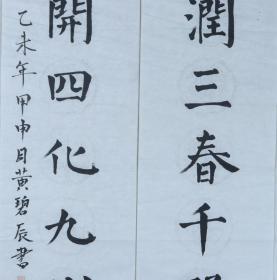 潤三春千
開四化九
乙未年甲申月黄碧辰書